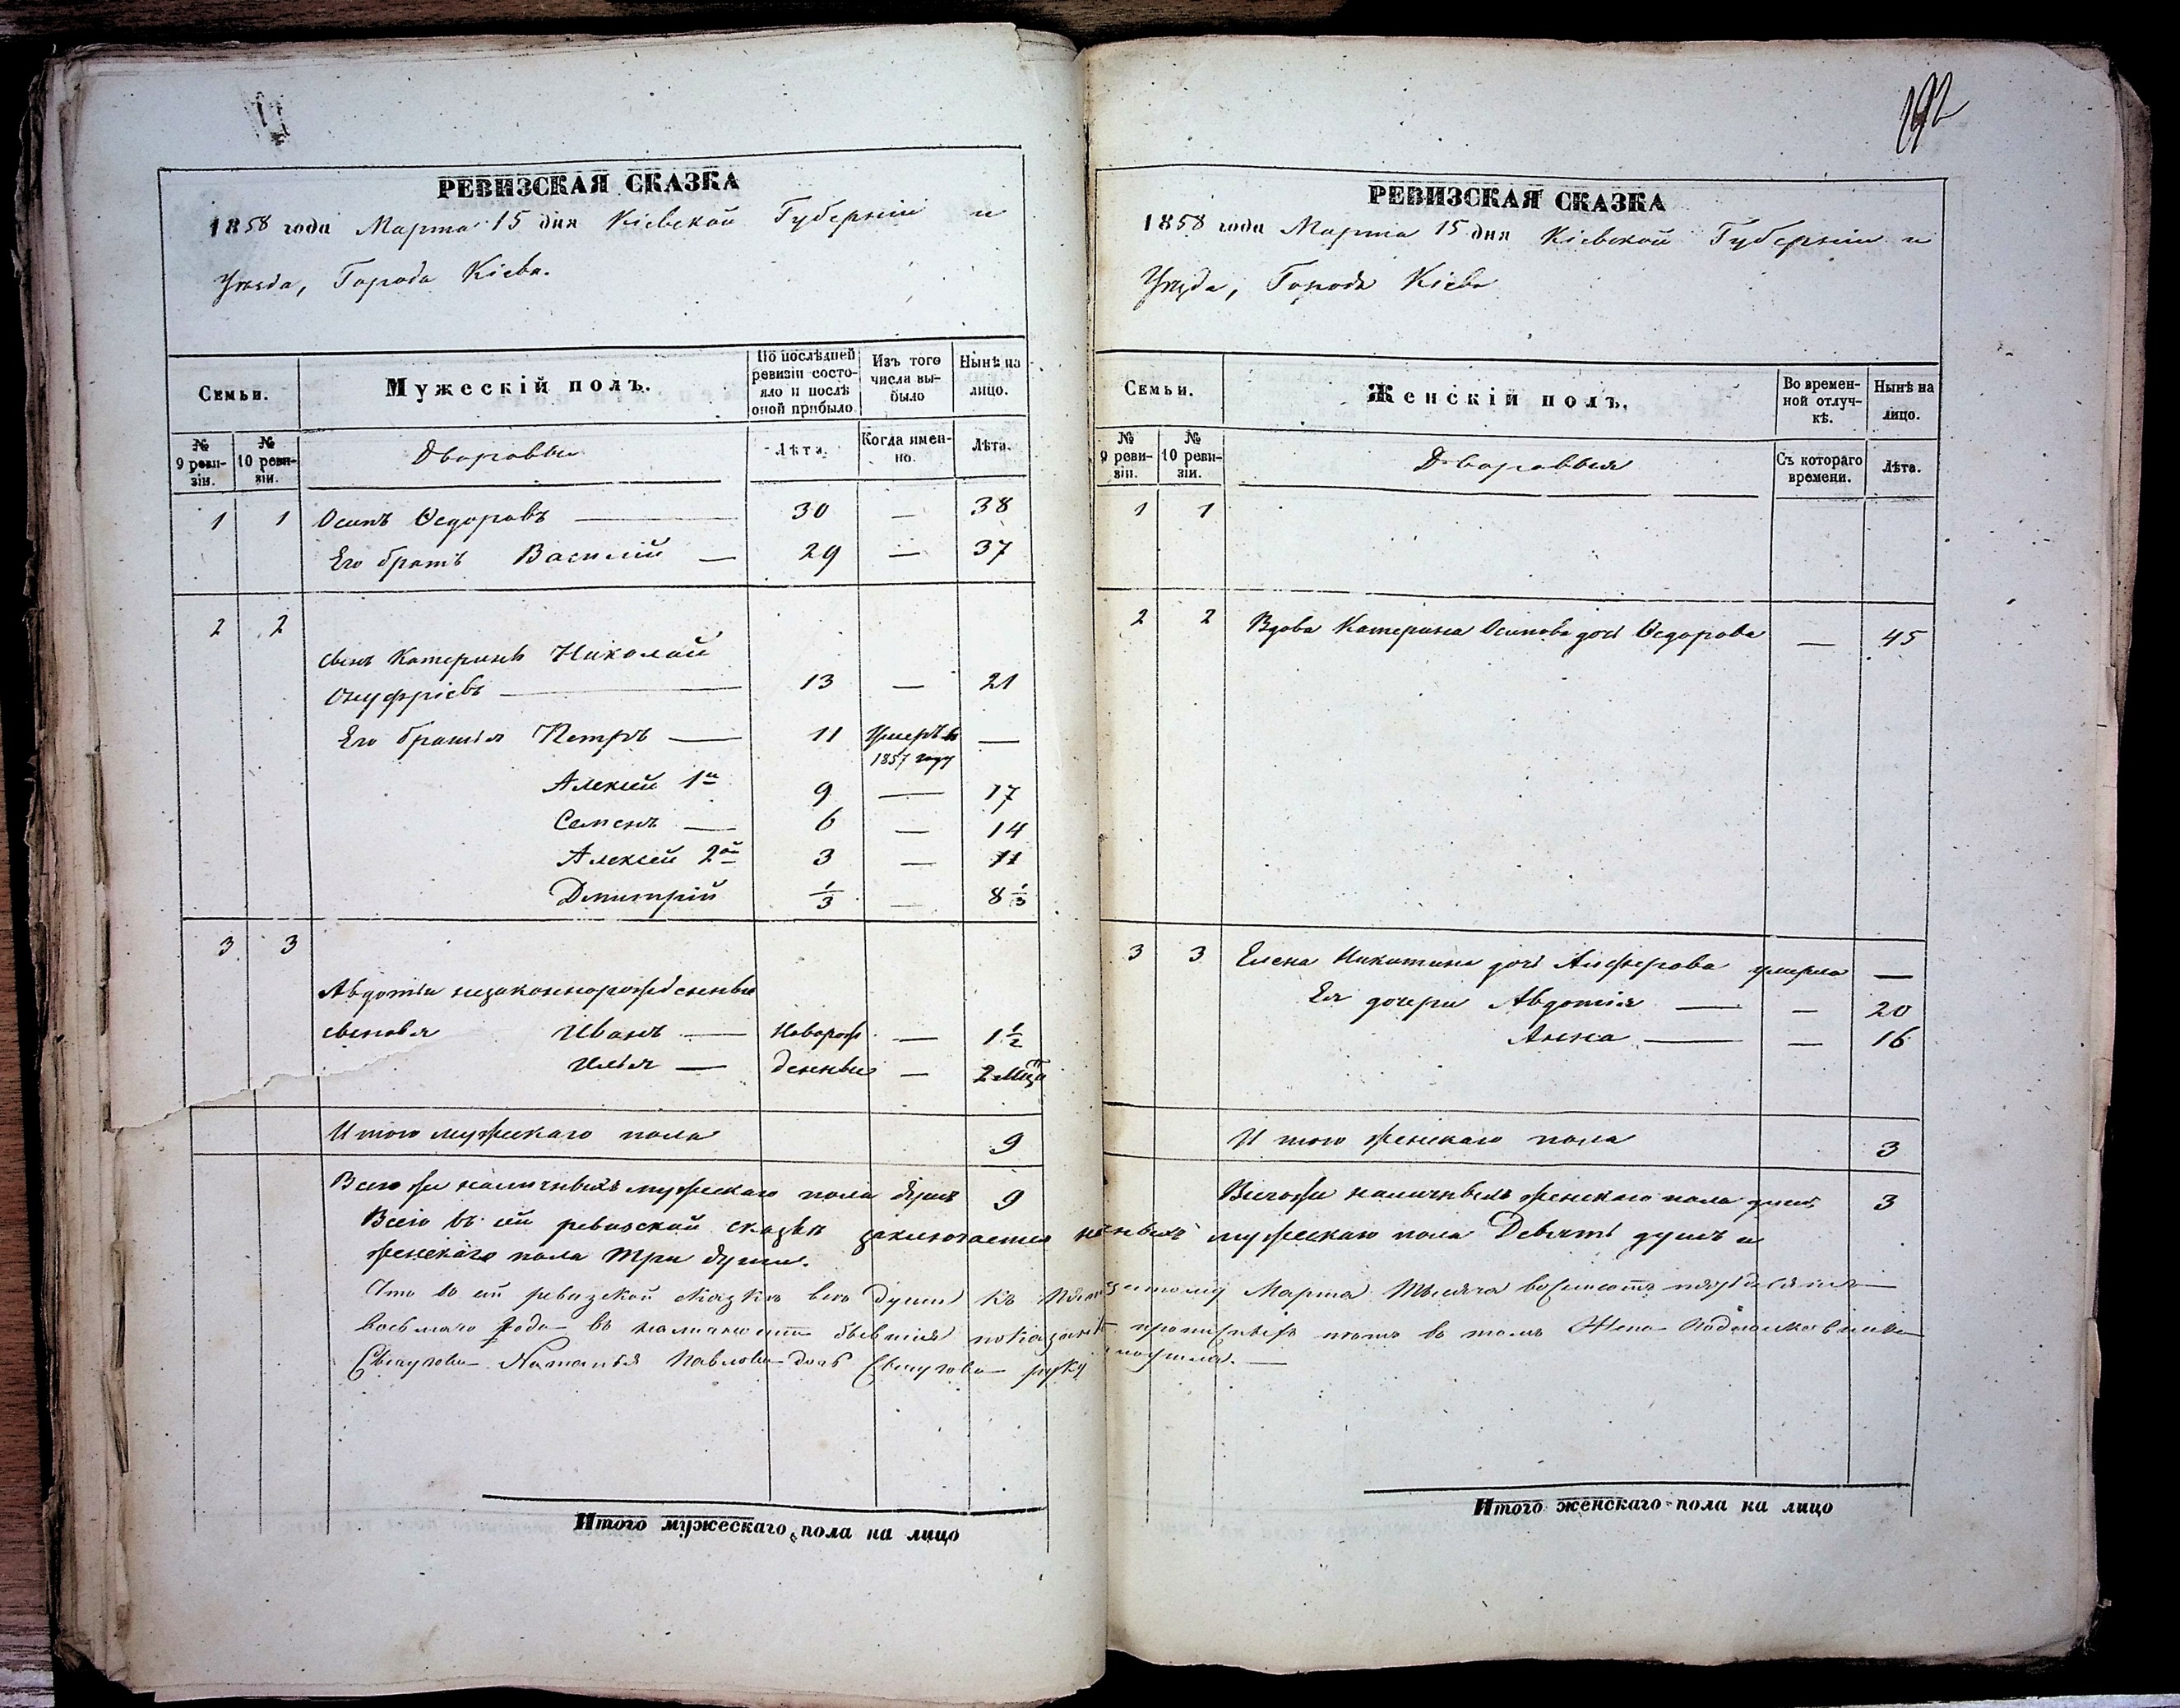 РЕВИЗСКАЯ СКАЗКА
1858 года Марта 15 дня Кіевской Губерніи и
Уѣзда, Города Кіева.
Семьи.
Мужескій полъ.
По послѣдней ревизіи состояло и послѣ оной прибыло
Изъ того числа выбыло
Нынѣ на лицо.
№ 9 ревизіи.
№ 10 ревизіи.
Дворовые
Лѣта.
Когда именно.
Лѣта.
1 1 Осипъ Ѳедоровъ — 30 — 38
Его братъ Василій — 29 — 37
2 2
сынъ Катерины Николай
Онуфріевъ — 13 — 21
Его братья Петръ — 11 Умеръ въ —
1857 году
Алексѣй 1й 9 — 17
Семенъ — 6 — 14
Алексѣй 2ой 3 — 11
Дмитрій 1/3 — 8 1/3
3 3
Авдотьи незаконнорожденные
сыновья Иванъ — Новорож — 1 1/2
Илья — денные — 2 мца
Итого мужескаго пола 9
Всего же наличныхъ мужескаго пола душъ 9
Итого мужескаго пола на лицо
192
РЕВИЗСКАЯ СКАЗКА
1858 года Марта 15 дня Кіевской Губерніи и
Уѣзда, Города Кіева
Семьи.
Женскій полъ.
Во временной отлучкѣ.
Нынѣ на лицо.
№ 9 ревизіи.
№ 10 ревизіи.
Дворовыя
Съ котораго времени.
Лѣта.
1 1
2 2 Вдова Катерина Осипова дочь Ѳедорова — 45
3 3 Елена Никитина дочь Алферова умерла —
Ея дочери Авдотія — — 20
Анна — — 16
Итого женскаго пола 3
Всего же наличныхъ женскаго пола душъ 3
Всего въ сей ревизской сказкѣ заключается мужескаго пола Девять душъ и
женскаго пола три души.
Что въ сей ревизской сказкѣ всѣ души къ Пятнадцатому Марта Тысяча восемсотъ пятьдесятъ
восьмаго года въ наличности бывшія показаны въ томъ Жена Подполковника
Наталья Павлова дочь руку
Итого женскаго пола на лицо